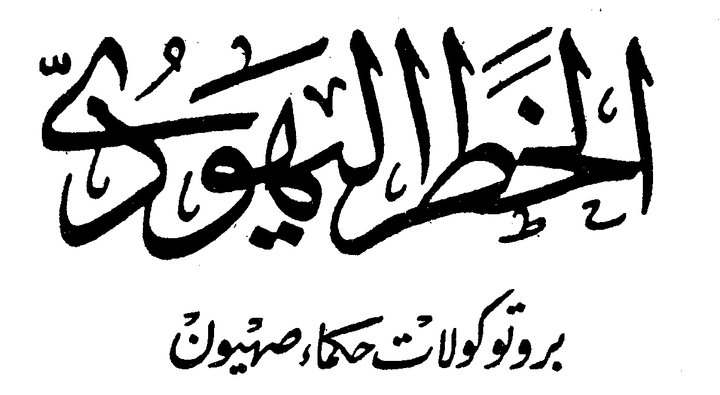 الخطر اليهودي
بروتوكولات حكماء صهيون